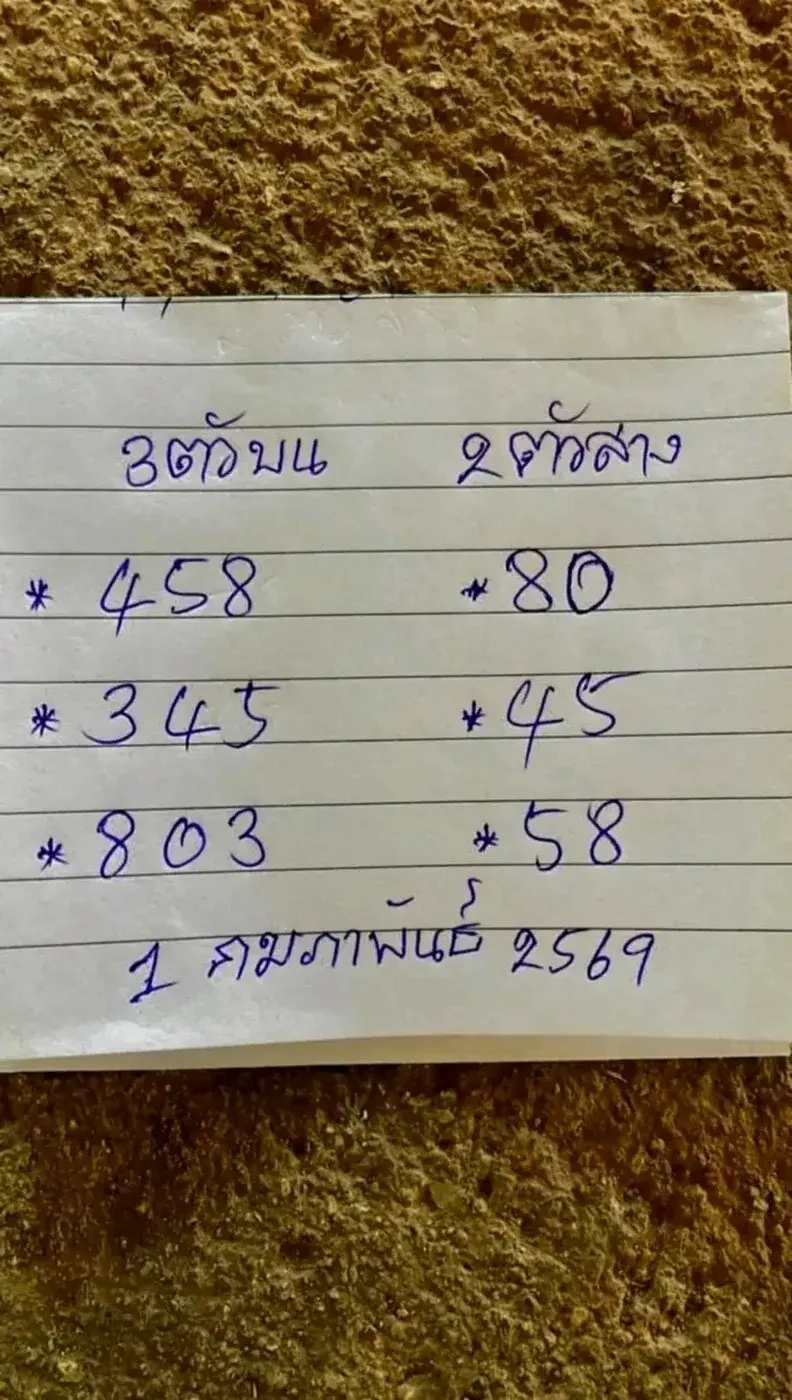 3ตัวบน 2ตัวล่าง
* 458 * 80
* 345 * 45
* 803 * 58
1 กุมภาพันธ์ 2569